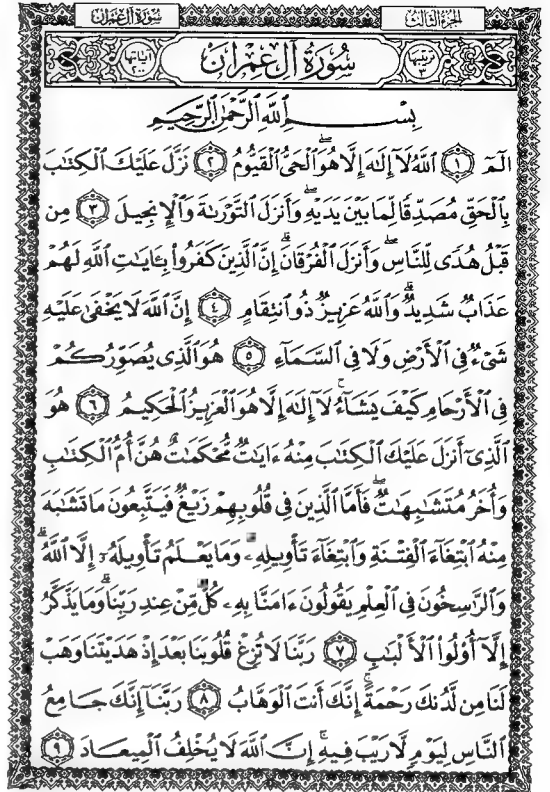 سُورَةُ آلِ عِمْرَان
الجزء الثالث
ترتيبها
٣
سُورَةُ آلِ عِمْرَان
آياتها
٢٠٠
بِسْمِ ٱللَّهِ ٱلرَّحْمَٰنِ ٱلرَّحِيمِ
الٓمٓ ١ ٱللَّهُ لَآ إِلَٰهَ إِلَّا هُوَ ٱلْحَىُّ ٱلْقَيُّومُ ٢ نَزَّلَ عَلَيْكَ ٱلْكِتَٰبَ
بِٱلْحَقِّ مُصَدِّقًا لِّمَا بَيْنَ يَدَيْهِ وَأَنزَلَ ٱلتَّوْرَىٰةَ وَٱلْإِنجِيلَ ٣ مِن
قَبْلُ هُدًى لِّلنَّاسِ وَأَنزَلَ ٱلْفُرْقَانَ ۗ إِنَّ ٱلَّذِينَ كَفَرُوا۟ بِـَٔايَٰتِ ٱللَّهِ لَهُمْ
عَذَابٌ شَدِيدٌ ۗ وَٱللَّهُ عَزِيزٌ ذُو ٱنتِقَامٍ ٤ إِنَّ ٱللَّهَ لَا يَخْفَىٰ عَلَيْهِ
شَىْءٌ فِى ٱلْأَرْضِ وَلَا فِى ٱلسَّمَآءِ ٥ هُوَ ٱلَّذِى يُصَوِّرُكُمْ
فِى ٱلْأَرْحَامِ كَيْفَ يَشَآءُ ۚ لَآ إِلَٰهَ إِلَّا هُوَ ٱلْعَزِيزُ ٱلْحَكِيمُ ٦ هُوَ
ٱلَّذِىٓ أَنزَلَ عَلَيْكَ ٱلْكِتَٰبَ مِنْهُ ءَايَٰتٌ مُّحْكَمَٰتٌ هُنَّ أُمُّ ٱلْكِتَٰبِ
وَأُخَرُ مُتَشَٰبِهَٰتٌ ۖ فَأَمَّا ٱلَّذِينَ فِى قُلُوبِهِمْ زَيْغٌ فَيَتَّبِعُونَ مَا تَشَٰبَهَ
مِنْهُ ٱبْتِغَآءَ ٱلْفِتْنَةِ وَٱبْتِغَآءَ تَأْوِيلِهِۦ ۗ وَمَا يَعْلَمُ تَأْوِيلَهُۥٓ إِلَّا ٱللَّهُ ۗ
وَٱلرَّٰسِخُونَ فِى ٱلْعِلْمِ يَقُولُونَ ءَامَنَّا بِهِۦ كُلٌّ مِّنْ عِندِ رَبِّنَا ۗ وَمَا يَذَّكَّرُ
إِلَّآ أُو۟لُوا۟ ٱلْأَلْبَٰبِ ٧ رَبَّنَا لَا تُزِغْ قُلُوبَنَا بَعْدَ إِذْ هَدَيْتَنَا وَهَبْ
لَنَا مِن لَّدُنكَ رَحْمَةً ۚ إِنَّكَ أَنتَ ٱلْوَهَّابُ ٨ رَبَّنَآ إِنَّكَ جَامِعُ
ٱلنَّاسِ لِيَوْمٍ لَّا رَيْبَ فِيهِ ۚ إِنَّ ٱللَّهَ لَا يُخْلِفُ ٱلْمِيعَادَ ٩